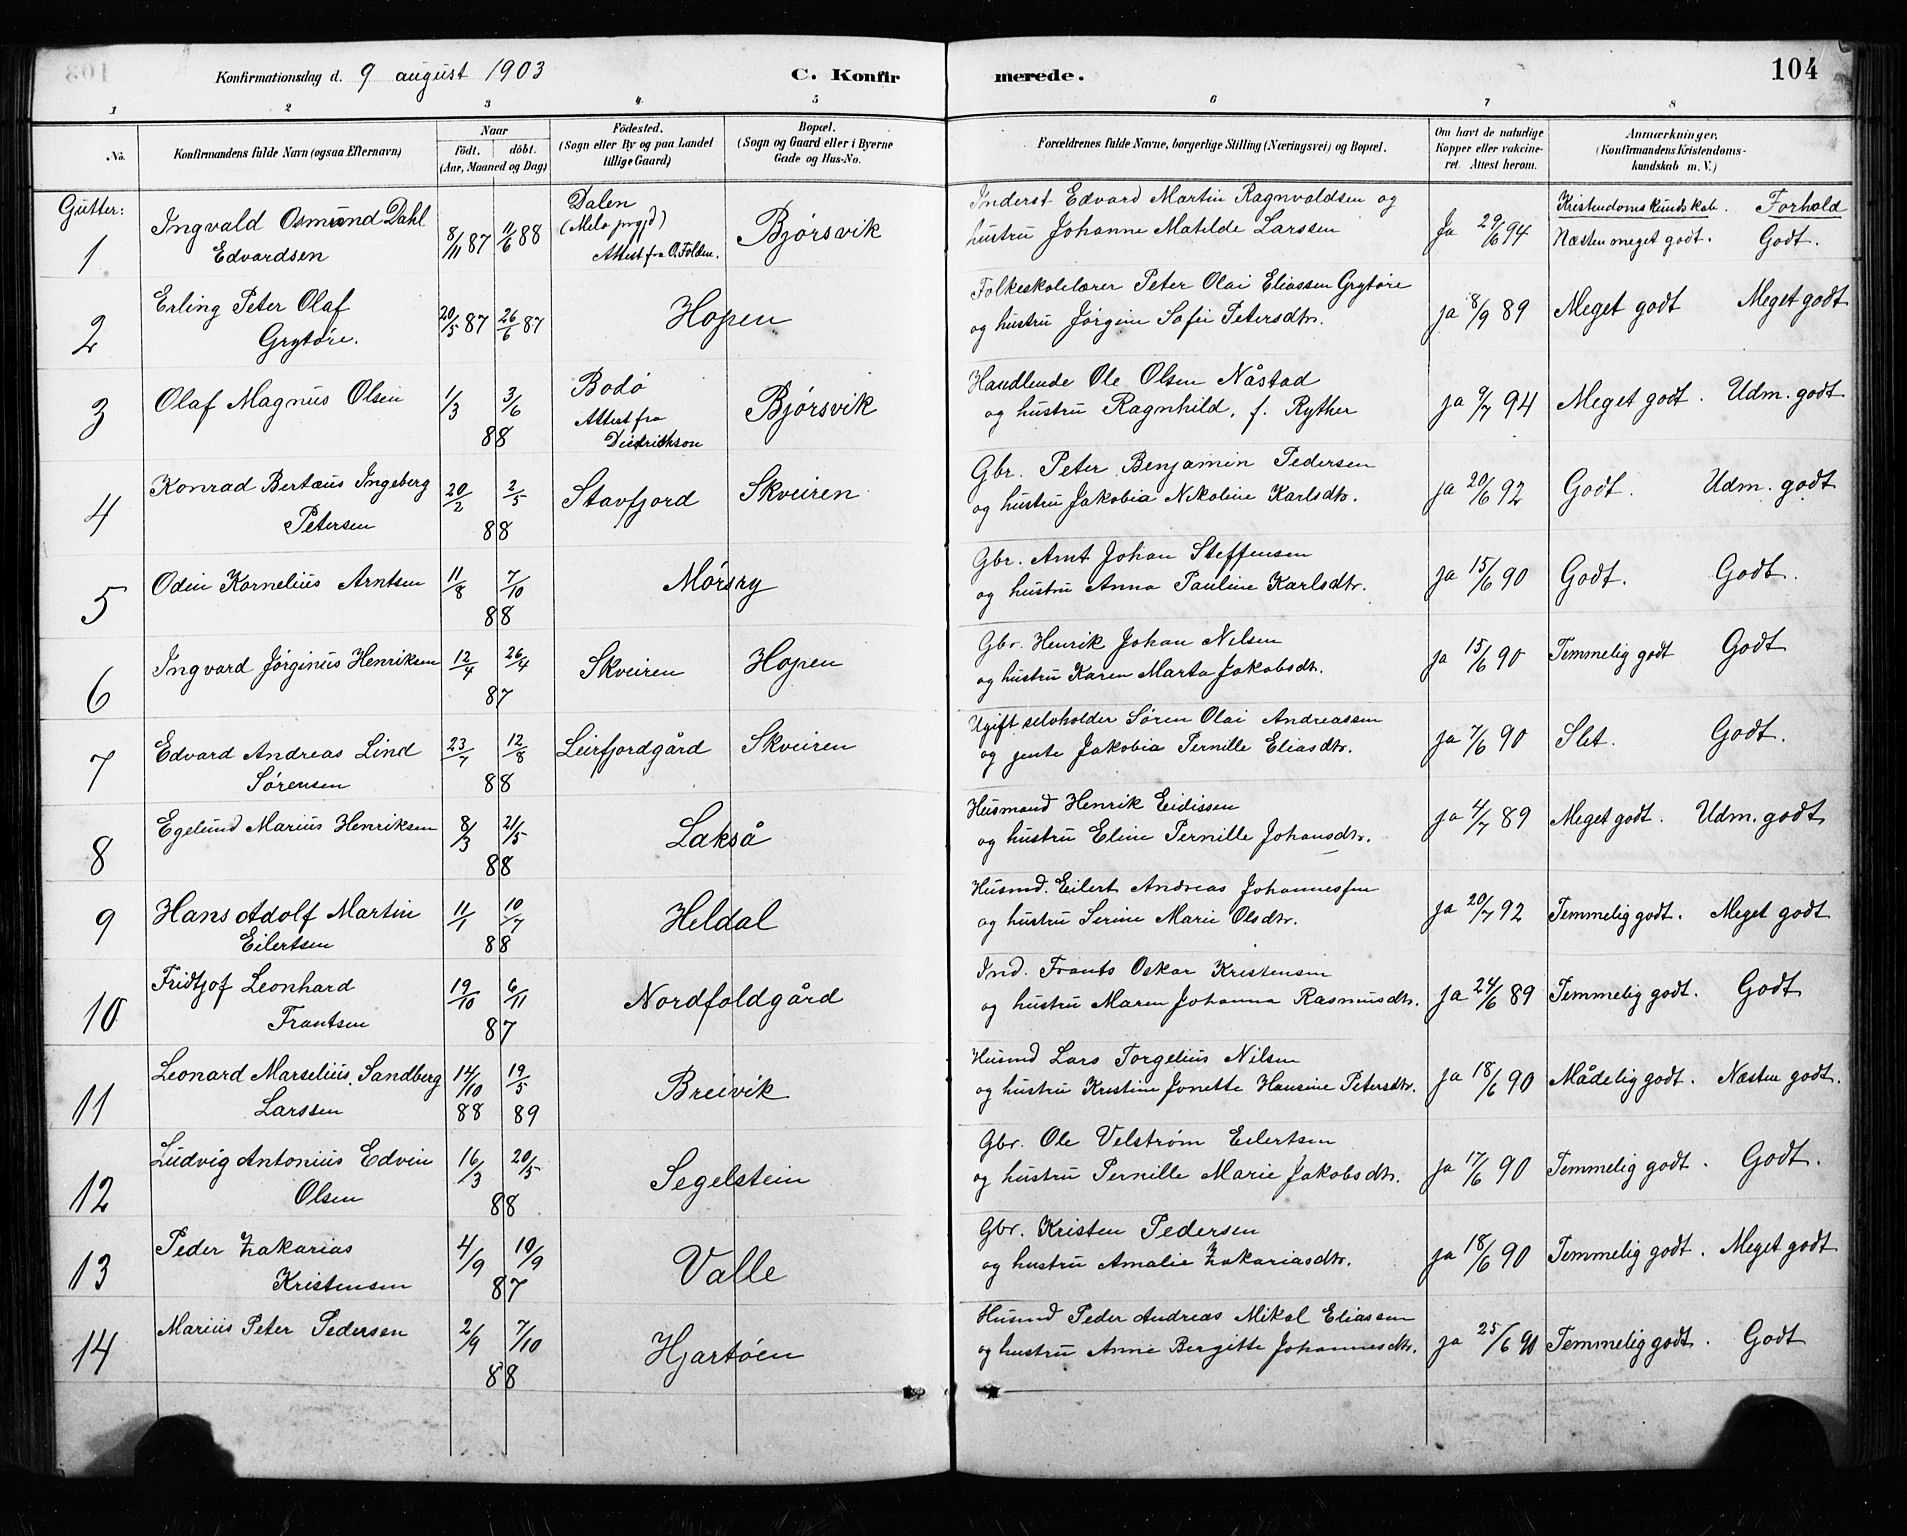 Konfirmationsdag d. 9 august 1903 C. Konfirmerede. 104
1 2 3 4 5 6 7 8
No. Konfirmandens fulde Navn (ogsaa Efternavn) Naar födt. döbt. (Aar, Maaned og Dag) Födested. (Sogn eller By og paa Landet tillige Gaard) Bopæl. (Sogn og Gaard eller i Byerne Gade og Hus-No. Forældrenes fulde Navne, borgerlige Stilling (Næringsvei) og Bopæl. Om havt de naturlige Kopper eller vakcineret. Attest herom. Anmærkninger. (Konfirmandens Kristendomskundskab m. V.)
Gutter: Kristendomskundskab. Forhold
1 Ingvald Osmund Dahl Edvardsen 8/11 87 11/6 88 Dalen (Melø prgjd) Attest fra O. Folden. Bjørsvik Inderst Edvard Martin Ragnvaldsen og hustru Johanne Matilde Larssen Ja 29/6 94 Næsten meget godt. Godt.
2 Erling Peter Olaf Grytøre. 20/5 87 26/6 87 Hopen Folkeskolelærer Peter Olai Eliassen Grytøre og hustru Jørgine Sofie Petersdtr. ja 8/9 89 Meget godt Meget godt
3 Olaf Magnus Olsen 1/3 3/6 88 Bodø Attest fra Diedrickson Bjørsvik Handlende Ole Olsen Nåstad og hustru Ragnhild, f. Ryther ja 9/7 94 Meget godt. Udm. godt
4 Konrad Bertæus Ingeberg Petersen 20/2 2/5 88 Stavfjord Skveiren Gbr. Peter Benjamin Pedersen og hustru Jakobia Nikoline Karlsdtr. ja 20/6 92 Godt. Udm. godt
5 Odin Kornelius Arntsen 11/8 7/10 88 Mørsry Gbr. Arnt Johan Steffensen og hustru Anna Pauline Karlsdtr. ja 15/6 90 Godt. Godt.
6 Ingvard Jørginus Henriksen 12/4 26/4 87 Skveiren Hopen Gbr. Henrik Johan Nilsen og hustru Karen Marta Jakobsdtr. ja 15/6 90 Temmelig godt Godt
7 Edvard Andreas Lind Sørensen 23/7 12/8 88 Leirfjordgård Skveiren Ugift selvholder Søren Olai Andreassen og jente Jakobia Pernille Eliasdtr. ja 7/6 90 Slet. Godt.
8 Egelund Marius Henriksen 8/3 21/5 88 Lakså Husmand Henrik Eidissen og hustru Eline Pernille Johansdtr. ja 4/7 89 Meget godt. Udm. godt
9 Hans Adolf Martin Eilertsen 11/1 10/7 88 Heldal Husmd. Eilert Andreas Johannessen og hustru Serine Marie Olsdtr. ja 20/7 92 Temmelig godt. Meget godt
10 Fridtjof Leonhard Frantsen 19/10 6/11 87 Nordfoldgård Ind. Frants Oskar Kristensen og hustru Maren Johanna Rasmusdtr. ja 24/6 89 Temmelig godt. Godt
11 Leonard Marselius Sandberg Larssen 14/10 88 19/5 89 Breivik Husmd Lars Torgelius Nilsen og hustru Kristine Jonette Hansine Petersdtr. ja 18/6 90 Mådelig godt. Næsten godt.
12 Ludvig Antonius Edvin Olsen 16/3 20/5 88 Segelstein Gbr. Ole Velstrøm Eilertsen og hustru Pernille Marie Jakobsdtr. ja 17/6 90 Temmelig godt. Godt.
13 Peder Zakarias Kristensen 4/9 10/9 87 Valle Gbr. Kristen Pedersen og hustru Amalie Zakariasdtr. ja 18/6 90 Temmelig godt. Meget godt
14 Marius Peter Pedersen 2/9 7/10 88 Hjartøen Husmd Peder Andreas Mikal Eliassen og hustru Anne Bergitte Johannesdtr. ja 25/6 90 Temmelig godt. Godt